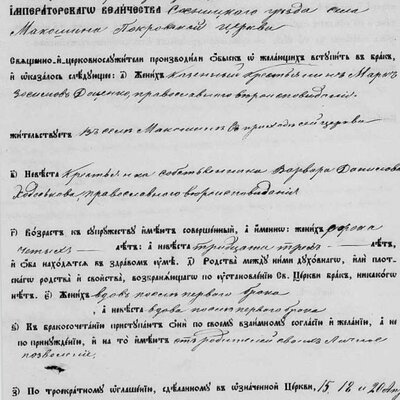 ІМПЕРАТОРСКАГѠ ВЕЛИЧЕСТВА Сквицкаго уѣзда села
Макошина Покровской Церкви
Сващенно-и-церковнослужители производили обыскъ ѡ желающихъ вступить въ бракъ,
и ѡказалось слѣдующее: а҃) Женихъ казенный крестьянинъ Марко
Зосимовъ Доценко, православнаго вѣроисповѣданія.
жительствуетъ въ селѣ Макошинѣ въ приходѣ сей церкви
в҃) Невѣста Крестьянка собственника Варвара Данилова
православнаго вѣроисповѣданія
г҃) Возрастъ къ супружеству имѣютъ совершенный, а именно: женихъ сорока
четырехъ — лѣтъ; а невѣста тридцати трехъ — лѣтъ,
и ѻба находатса въ здравомъ оумѣ. д҃) Родства между ними духовнагѡ, или плот-
скагѡ родства и свойства, возбранающагѡ по установленію Св. Церкви бракъ, никакогѡ
нѣтъ. є҃) Женихъ вдовъ послѣ перваго брака
а невѣста вдова послѣ перваго брака
ѕ҃) Къ бракосочетанію приступаютъ ѻни по своему взаимному согласію и желанію, а не
по принужденію, и на то имѣютъ отъ родителей своихъ личное
позволеніе.
з҃) По троекратному ѡглашенію, сдѣланному въ ѡзначенной Церкви, 15, 18 и 20